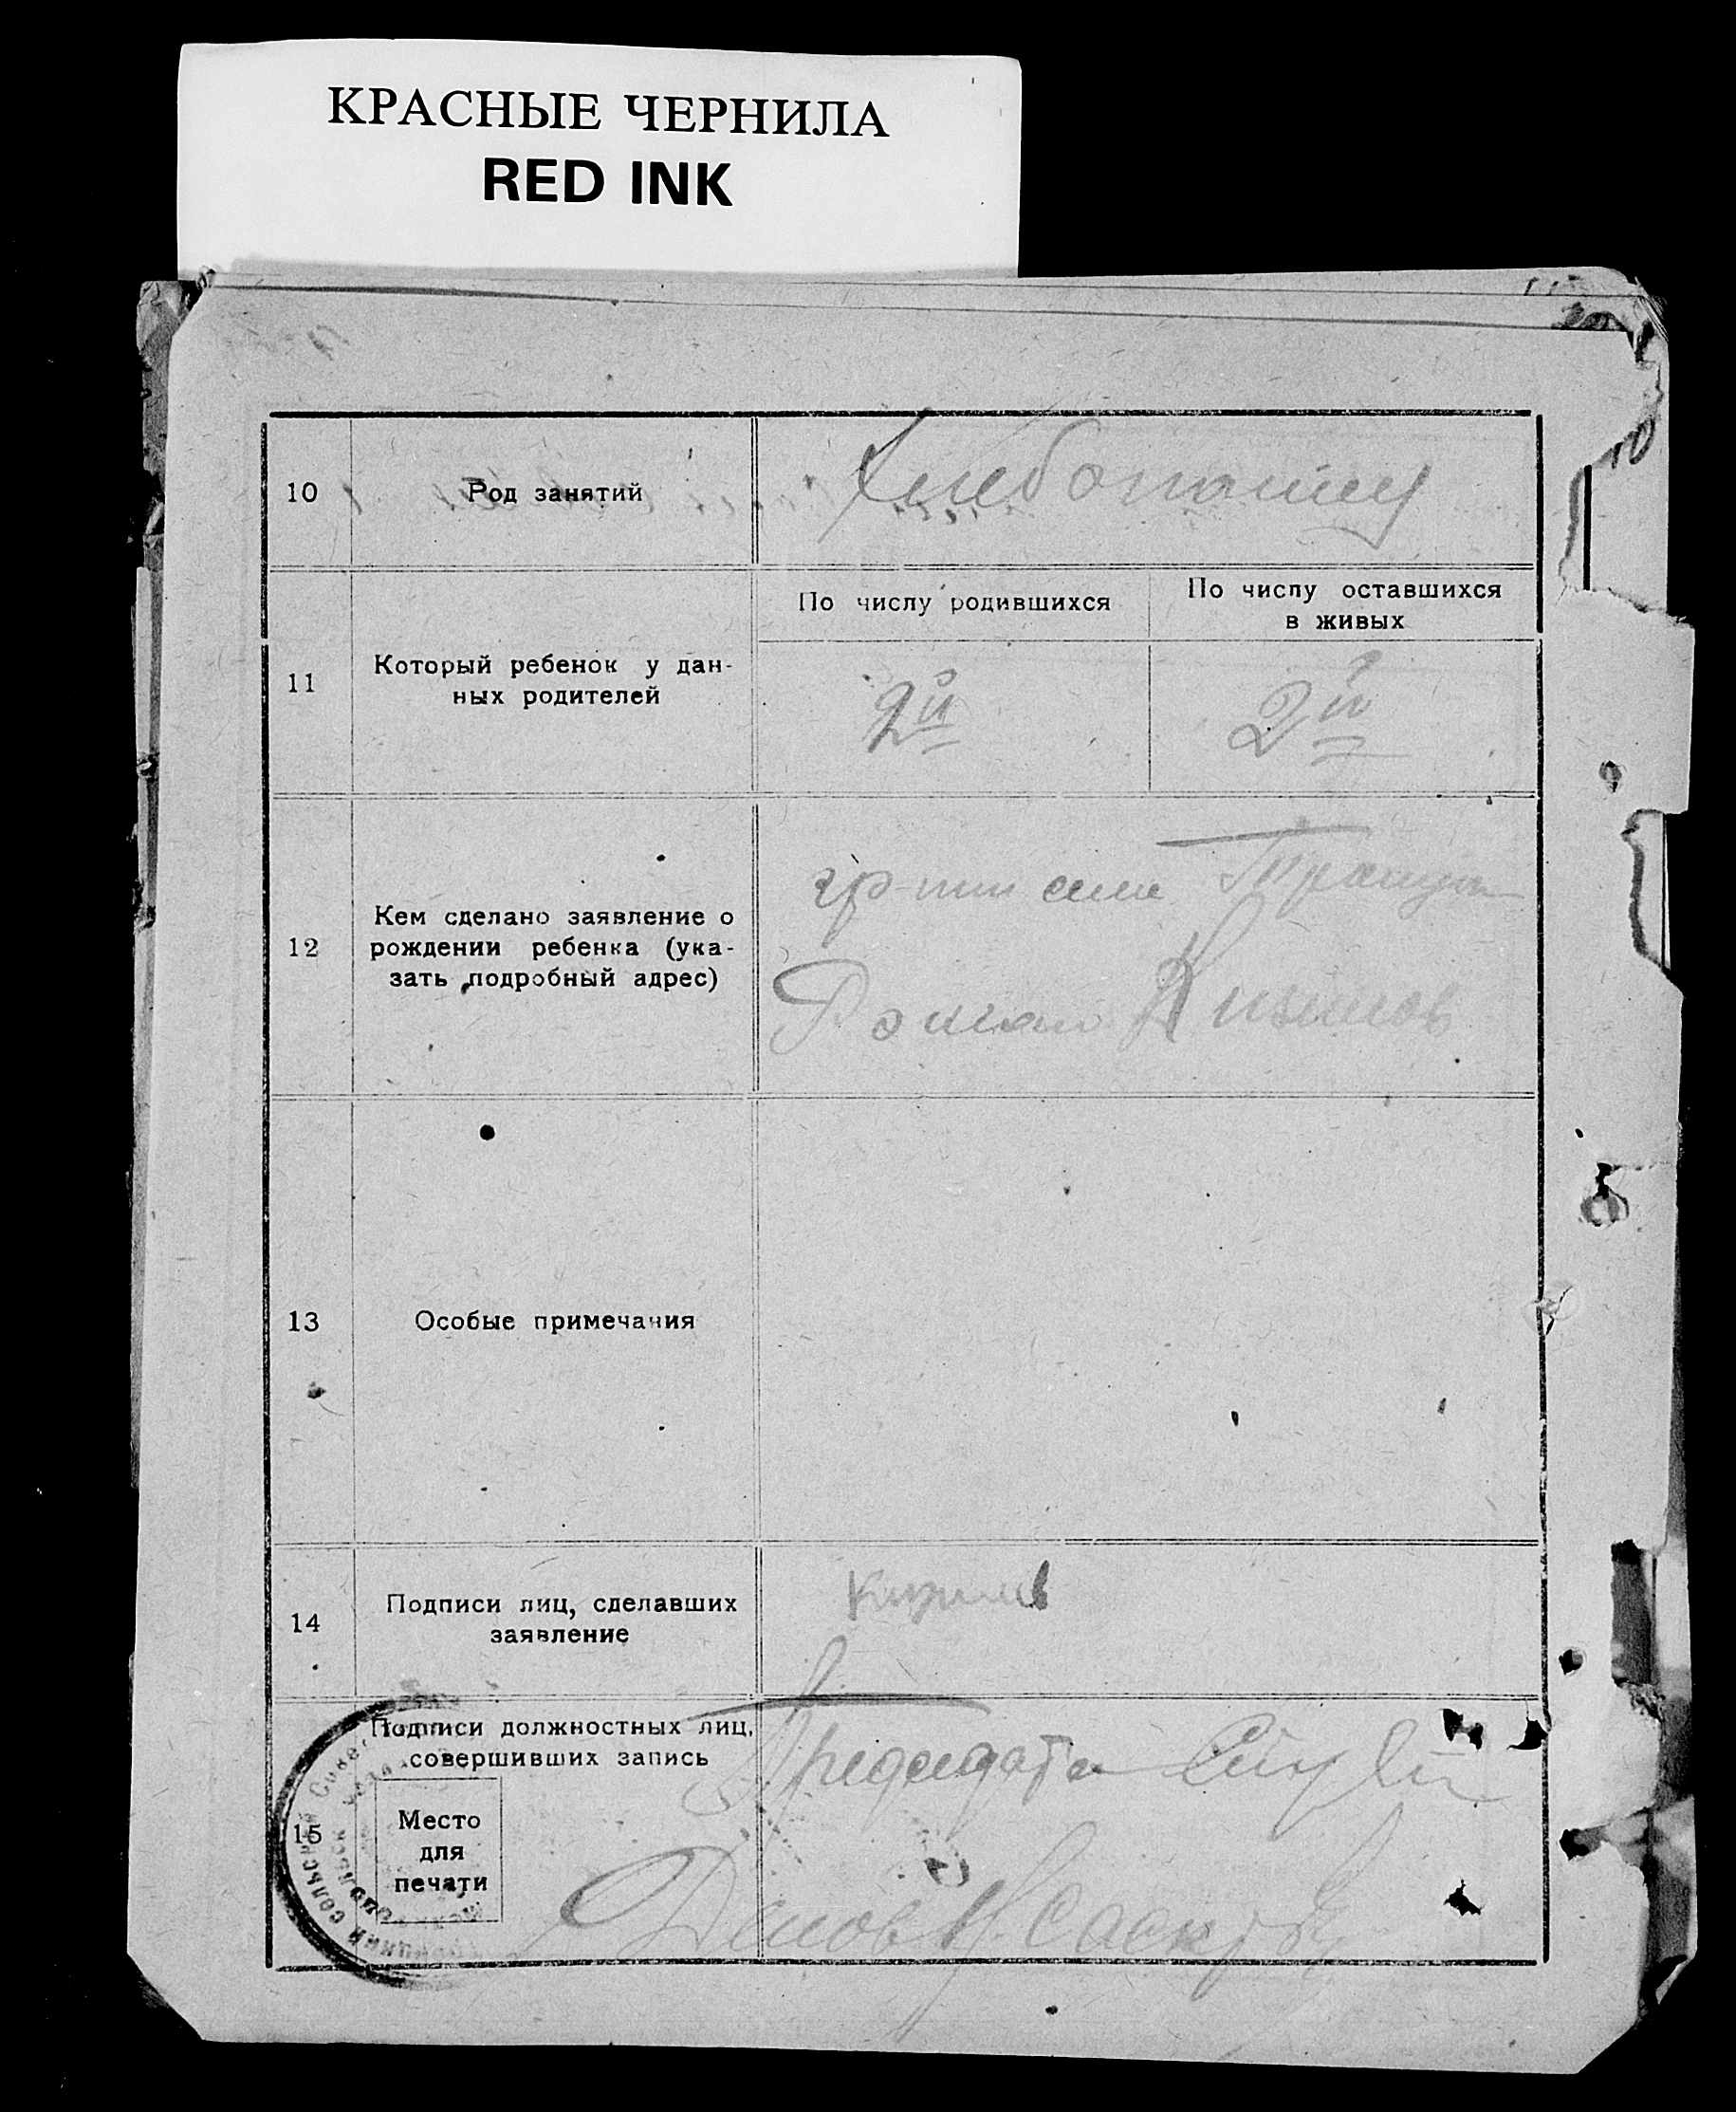 КРАСНЫЕ ЧЕРНИЛА
RED INK
10
Род занятий
Хлебопашец
11
Который ребенок у дан-
ных родителей
По числу родившихся
По числу оставшихся
в живых
2й
2й
12
Кем сделано заявление о
рождении ребенка (ука-
зать подробный адрес)
гр-нин села
Роман
13
Особые примечания
14
Подписи лиц, сделавших
заявление
15
Подписи должностных лиц,
совершивших запись
Место
для
печати